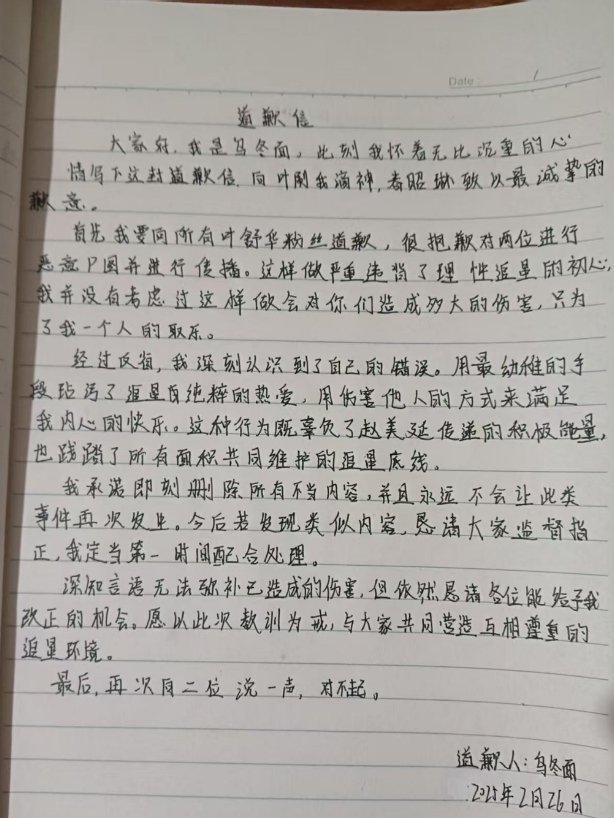 Date
道歉信
大家好，我是乌冬面，此刻我怀着无比沉重的心
情写下这封道歉信，向叶刚我滴神，春昭琳致以最诚挚的
歉意。
首先我要向所有叶舒华粉丝道歉，很抱歉对两位进行
恶意P图并进行传播。这样做严重违背了理性追星的初心，
我并没有考虑过这样做会对你们造成多大的伤害，只为
了我一个人的取乐。
经过反省，我深刻认识到了自己的错误。用最幼稚的手
段玷污了追星有纯粹的热爱，用伤害他人的方式来满足
我内心的快乐。这种行为既辜负了赵美延传递的积极能量，
也践踏了所有面积共同维护的追星底线。
我承诺即刻删除所有不当内容，并且永远不会让此类
事件再次发生。今后若发现类似内容，恳请大家监督指
正，我定当第一时间配合处理。
深知言语无法弥补已造成的伤害，但依然恳请各位能给予我
改正的机会。愿以此次教训为戒，与大家共同营造互相尊重的
追星环境。
最后，再次向二位说一声，对不起。
道歉人：乌冬面
2025年2月26日